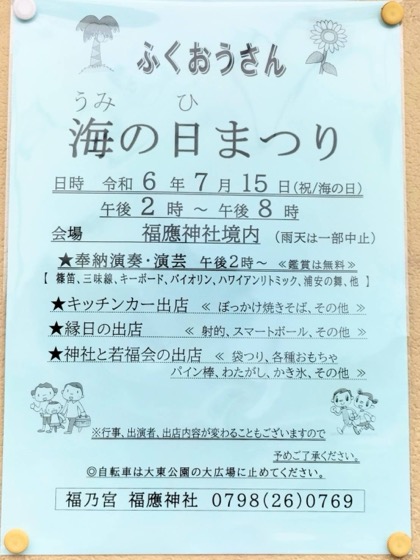 ふくおうさん
うみ ひ
海の日まつり
日時 令和6年7月15日(祝/海の日)
午後2時~午後8時
会場 福應神社境内 (雨天は一部中止)
★奉納演奏・演芸 午後2時~ ≪鑑賞は無料≫
【 篠笛、三味線、キーボード、バイオリン、ハワイアンリトミック、浦安の舞、他 】
★キッチンカー出店 ≪ ぼっかけ焼きそば、その他 ≫
★縁日の出店 ≪ 射的、スマートボール、その他 ≫
★神社と若福会の出店 ≪ 袋つり、各種おもちゃ
パイン棒、わたがし、かき氷、その他 ≫
※行事、出演者、出店内容が変わることもございますので
予めご了承ください。
◎自転車は大東公園の大広場に止めてください。
福乃宮 福應神社 0798(26)0769